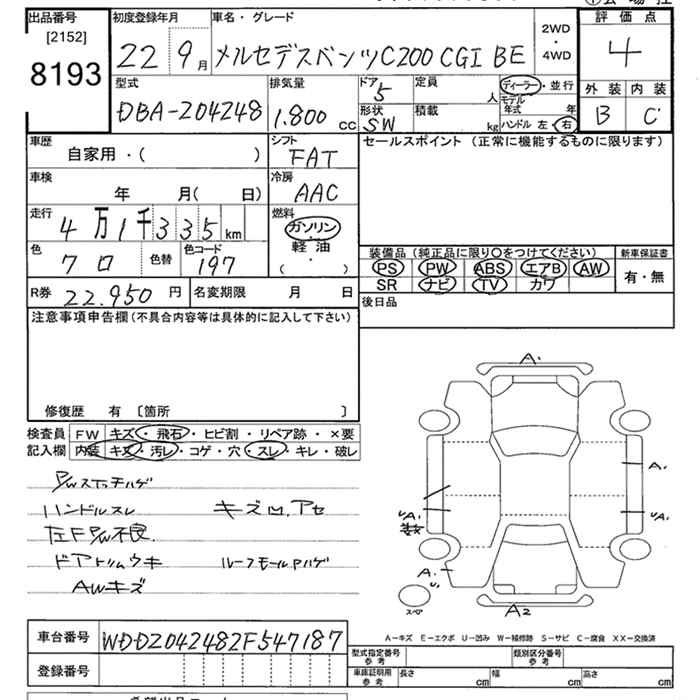 出品番号 初度登録年月 車名・グレード 2WD ・ 4WD 評価点
[2152] 8193 22 9月 メルセデスベンツC200 CGI BE 4
型式 排気量 ドア 定員 ディーラー・並行 外装 内装
DBA-204248 1.800 cc 5 人 モデル年式 年 B C
形状 積載 ハンドル 左・右
SW kg
車歴 シフト セールスポイント (正常に機能するものに限ります)
自家用・( ) FAT
車検 冷房
年 月( 日) AAC
走行 燃料
4万1千335 km ガソリン
軽油
( ・ )
色 色替 色コード 装備品 (純正品に限り○をつけてください) 新車保証書
クロ 197 PS PW ABS エアB AW 有・無
SR ナビ TV カワ
R券 22.950 円 名変期限 月 日 後日品
注意事項申告欄(不具合内容等は具体的に記入して下さい)
修復歴 有 [箇所 ]
検査員 FW キズ・飛石・ヒビ割・リペア跡・×要
記入欄 内装 キズ・汚レ・コゲ・穴・スレ・キレ・破レ
P/Wスイッチハゲ
ハンドルスレ キズ凹,アセ
左F P/W不良
ドアトリムウキ ルーフモールハゲ
AWキズ
A.
A.
UA.
UA.
A.
U.
スペア
A2
A-キズ E-エクボ U-凹み W-補修跡 S-サビ C-腐食 XX-交換済
車台番号 WDDZ042482F547187
型式指定番号 参考 類別区分番号 参考
登録番号
車庫証明用 参考 長さ cm 幅 cm 高さ cm